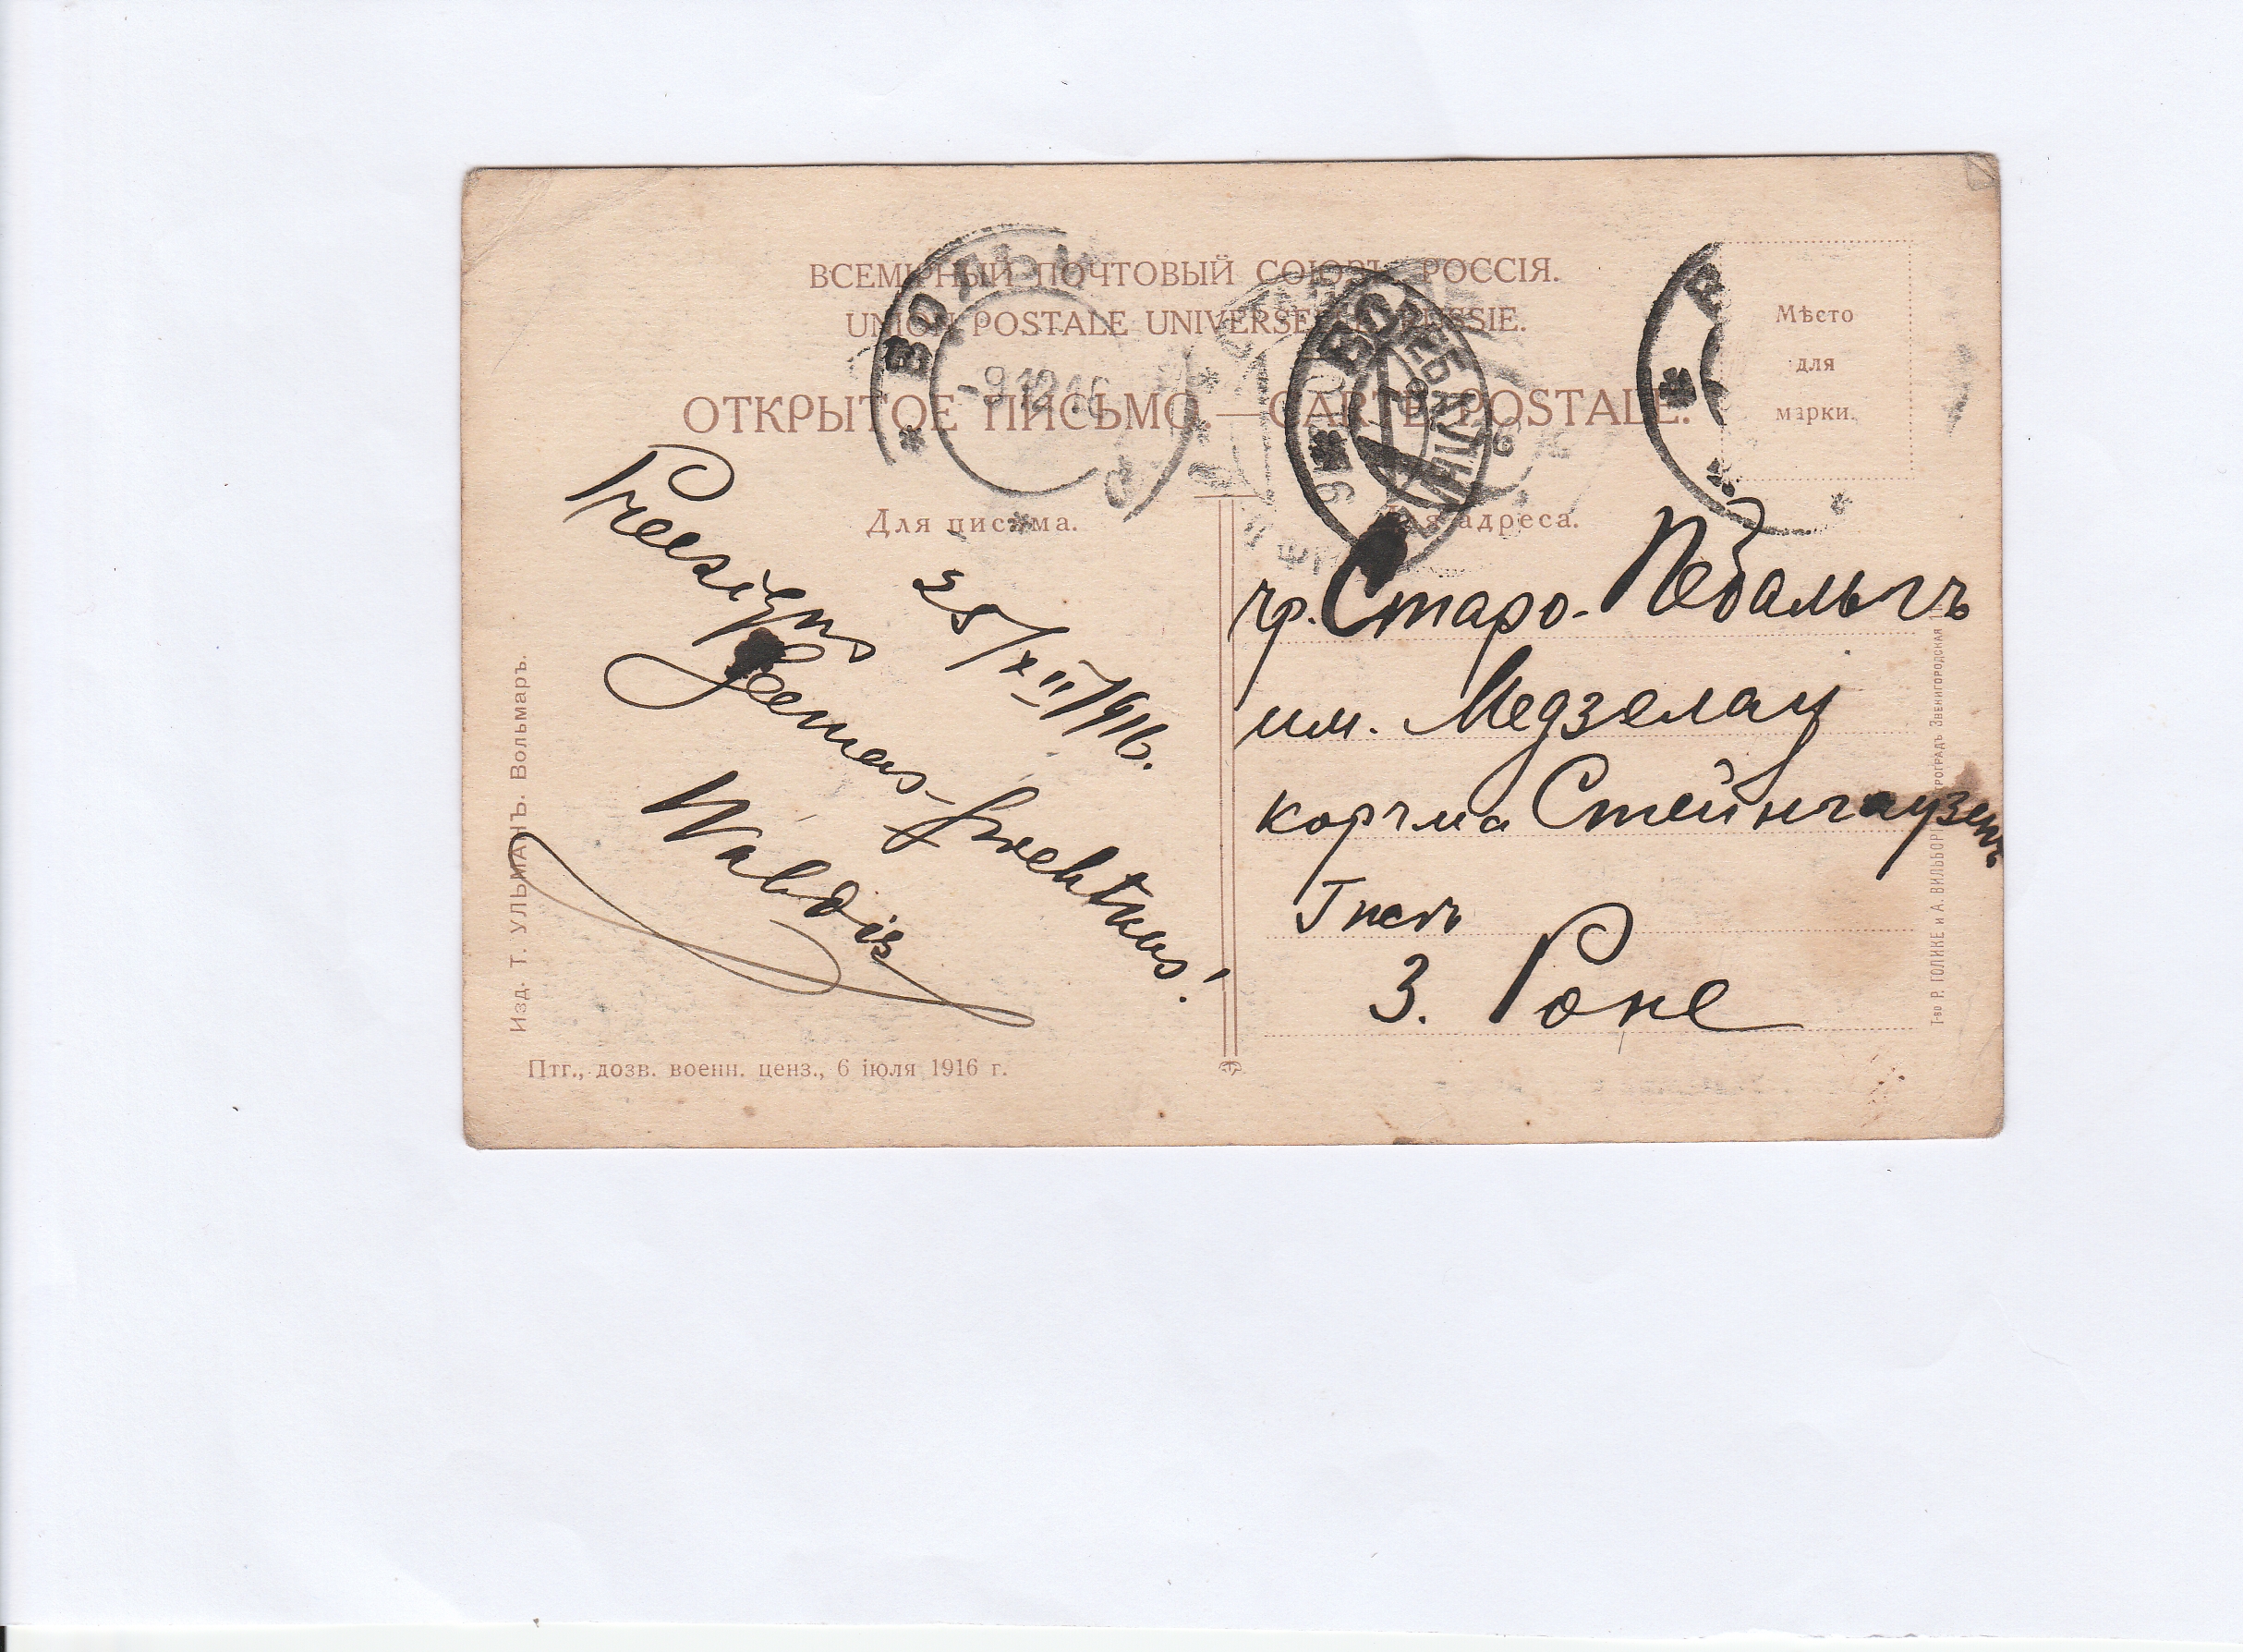 ВСЕМІРНЫЙ ПОЧТОВЫЙ СОЮЗЪ. РОССІЯ.
UNION POSTALE UNIVERSELLE. RUSSIE.
ОТКРЫТОЕ ПИСЬМО.—CARTE POSTALE.
Мѣсто
для
марки.
Для письма.
Для адреса.
-9 12 16
25/XII 1916.
Preezigus
Seemas-swehtkus!
Waldis
чр. Старо-Пебальгъ
им. Медзелау
корчма Стейнгаузенъ
Гпсдъ
З. Роне
Изд. Т. УЛЬМАНЪ. Вольмаръ.
Птг., дозв. военн. ценз., 6 іюля 1916 г.
Т-во Р. ГОЛИКЕ и А. ВИЛЬБОРГ ЗВЕНИГОРОДСКАЯ